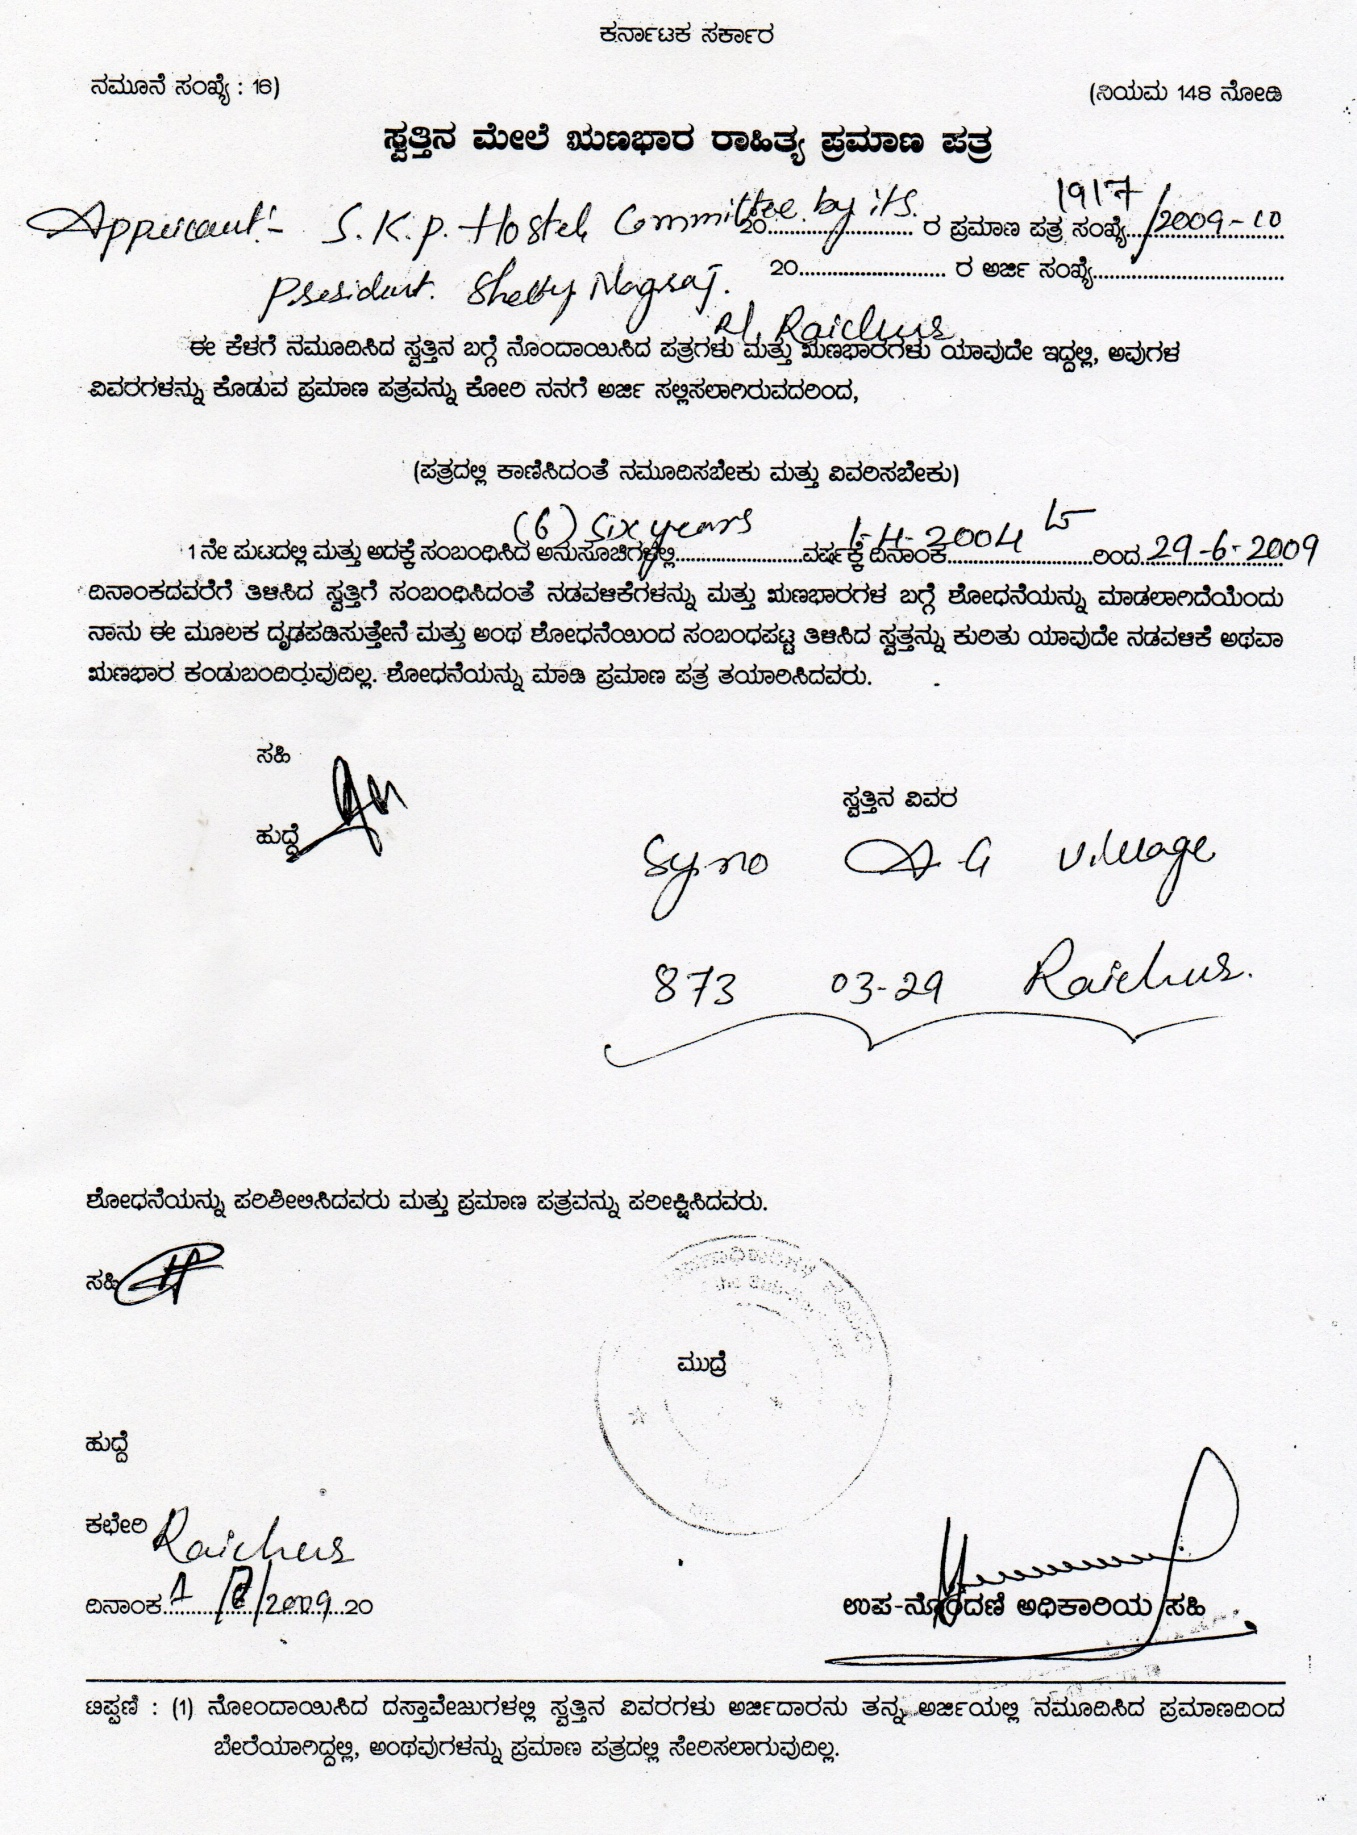 ಕರ್ನಾಟಕ ಸರ್ಕಾರ
ನಮೂನೆ ಸಂಖ್ಯೆ : 16) (ನಿಯಮ 148 ನೋಡಿ
ಸ್ವತ್ತಿನ ಮೇಲೆ ಋಣಭಾರ ರಾಹಿತ್ಯ ಪ್ರಮಾಣ ಪತ್ರ
Applicant:- S.K.P. Hostel Committee by its.
20.......................... ರ ಪ್ರಮಾಣ ಪತ್ರ ಸಂಖ್ಯೆ...1917/2009-10
President. Shetty Nagraj.
20.......................... ರ ಅರ್ಜಿ ಸಂಖ್ಯೆ..................................
R/. Raichur
ಈ ಕೆಳಗೆ ನಮೂದಿಸಿದ ಸ್ವತ್ತಿನ ಬಗ್ಗೆ ನೊಂದಾಯಿಸಿದ ಪತ್ರಗಳು ಮತ್ತು ಋಣಭಾರಗಳು ಯಾವುದೇ ಇದ್ದಲ್ಲಿ, ಅವುಗಳ
ವಿವರಗಳನ್ನು ಕೊಡುವ ಪ್ರಮಾಣ ಪತ್ರವನ್ನು ಕೋರಿ ನನಗೆ ಅರ್ಜಿ ಸಲ್ಲಿಸಲಾಗಿರುವದರಿಂದ,
(ಪತ್ರದಲ್ಲಿ ಕಾಣಿಸಿದಂತೆ ನಮೂದಿಸಬೇಕು ಮತ್ತು ವಿವರಿಸಬೇಕು)
1 ನೇ ಪುಟದಲ್ಲಿ ಮತ್ತು ಅದಕ್ಕೆ ಸಂಬಂಧಿಸಿದ ಅನುಸೂಚಿಗಳಲ್ಲಿ (6) Six years ವರ್ಷಕ್ಕೆ ದಿನಾಂಕ 1-4-2004 to ರಿಂದ 29-6-2009
ದಿನಾಂಕದವರೆಗೆ ತಿಳಿಸಿದ ಸ್ವತ್ತಿಗೆ ಸಂಬಂಧಿಸಿದಂತೆ ನಡವಳಿಕೆಗಳನ್ನು ಮತ್ತು ಋಣಭಾರಗಳ ಬಗ್ಗೆ ಶೋಧನೆಯನ್ನು ಮಾಡಲಾಗಿದೆಯೆಂದು
ನಾನು ಈ ಮೂಲಕ ದೃಢಪಡಿಸುತ್ತೇನೆ ಮತ್ತು ಅಂಥ ಶೋಧನೆಯಿಂದ ಸಂಬಂಧಪಟ್ಟ ತಿಳಿಸಿದ ಸ್ವತ್ತನ್ನು ಕುರಿತು ಯಾವುದೇ ನಡವಳಿಕೆ ಅಥವಾ
ಋಣಭಾರ ಕಂಡುಬಂದಿರುವುದಿಲ್ಲ. ಶೋಧನೆಯನ್ನು ಮಾಡಿ ಪ್ರಮಾಣ ಪತ್ರ ತಯಾರಿಸಿದವರು.
ಸಹಿ
ಹುದ್ದೆ
ಸ್ವತ್ತಿನ ವಿವರ
Sy.no A-G Village
873 03-29 Raichur.
ಶೋಧನೆಯನ್ನು ಪರಿಶೀಲಿಸಿದವರು ಮತ್ತು ಪ್ರಮಾಣ ಪತ್ರವನ್ನು ಪರೀಕ್ಷಿಸಿದವರು.
ಸಹಿ
ಮುದ್ರೆ
ಹುದ್ದೆ
ಕಛೇರಿ Raichur
ದಿನಾಂಕ /2009 20
ಉಪ-ನೊಂದಣಿ ಅಧಿಕಾರಿಯ ಸಹಿ
ಟಿಪ್ಪಣಿ : (1) ನೋಂದಾಯಿಸಿದ ದಸ್ತಾವೇಜುಗಳಲ್ಲಿ ಸ್ವತ್ತಿನ ವಿವರಗಳು ಅರ್ಜಿದಾರನು ತನ್ನ ಅರ್ಜಿಯಲ್ಲಿ ನಮೂದಿಸಿದ ಪ್ರಮಾಣದಿಂದ
ಬೇರೆಯಾಗಿದ್ದಲ್ಲಿ, ಅಂಥವುಗಳನ್ನು ಪ್ರಮಾಣ ಪತ್ರದಲ್ಲಿ ಸೇರಿಸಲಾಗುವುದಿಲ್ಲ.